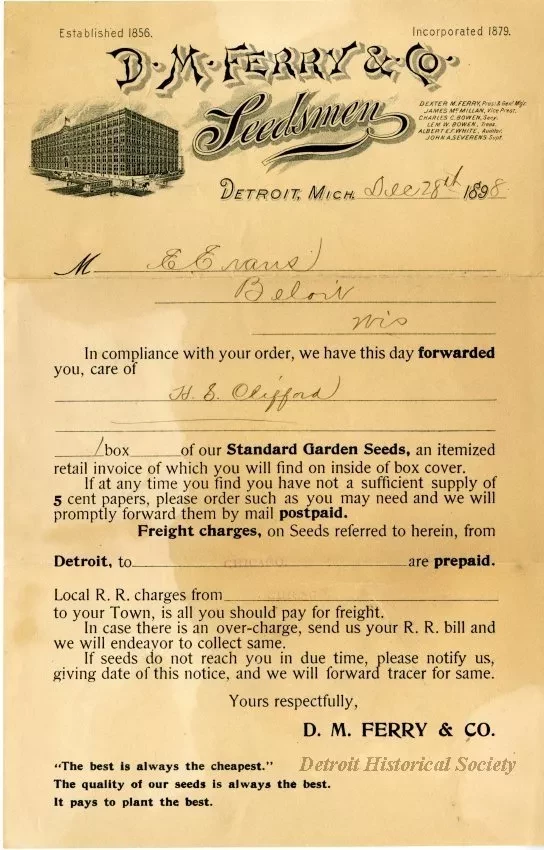 Established 1856.
Incorporated 1879.
D. M. FERRY & CO.
Seedsmen
DEXTER M. FERRY, Prest. & Genl Mgr.
JAMES McMILLAN, Vice Prest.
CHARLES C. BOWEN, Secy.
LEM W. BOWEN, Treas.
ALBERT E. F. WHITE, Auditor.
JOHN A. SEVERENS, Supt.
DETROIT, MICH. Dec 28th 1898.
M E Evans
Beloit
Wis
In compliance with your order, we have this day forwarded
you, care of
H. S. Clifford
1 box of our Standard Garden Seeds, an itemized
retail invoice of which you will find on inside of box cover.
If at any time you find you have not a sufficient supply of
5 cent papers, please order such as you may need and we will
promptly forward them by mail postpaid.
Freight charges, on Seeds referred to herein, from
Detroit, to CHICAGO are prepaid.
Local R. R. charges from
to your Town, is all you should pay for freight.
In case there is an over-charge, send us your R. R. bill and
we will endeavor to collect same.
If seeds do not reach you in due time, please notify us,
giving date of this notice, and we will forward tracer for same.
Yours respectfully,
D. M. FERRY & CO.
"The best is always the cheapest."
Detroit Historical Society
The quality of our seeds is always the best.
It pays to plant the best.